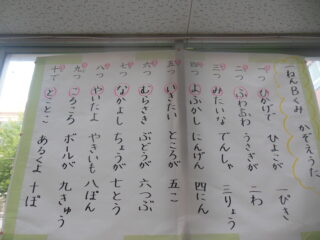 一ねんBくみ かぞえうた
一つ ひかげで ひよこが 一ぴき
二つ ふわふわ うさぎが 二わ
三つ みたいな でんしゃ 三りょう
四つ よふかし にんげん 四にん
五つ いきたい ところが 五こ
六つ むらさき ぶどうが 六つぶ
七つ なかよし ちょうが 七とう
八つ やいたよ やきいも 八ぽん
九つ ころころ ボールが 九きゅう
十で とことこ あるくよ 十ぽ